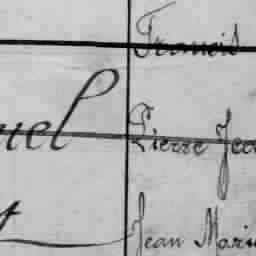 Francis
uel Pierre Jea
Jean Mari